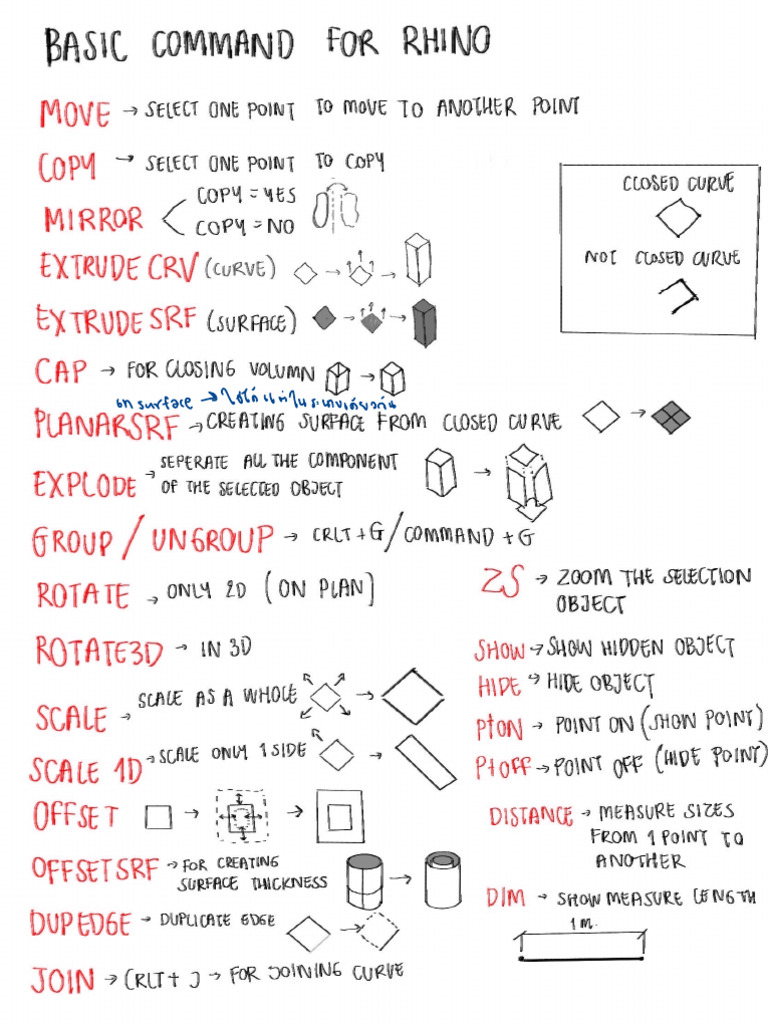 BASIC COMMAND FOR RHINO
MOVE → SELECT ONE POINT TO MOVE TO ANOTHER POINT
COPY → SELECT ONE POINT TO COPY
MIRROR
COPY = YES
COPY = NO
EXTRUDE CRV (CURVE)
EXTRUDE SRF (SURFACE)
CLOSED CURVE
NOT CLOSED CURVE
CAP → FOR CLOSING VOLUMN
surface →
PLANARSRF → CREATING SURFACE FROM CLOSED CURVE
EXPLODE → SEPERATE ALL THE COMPONENT
OF THE SELECTED OBJECT
GROUP / UNGROUP → CRLT + G / COMMAND + G
ROTATE → ONLY 2D (ON PLAN]
ROTATE3D → IN 3D
SCALE → SCALE AS A WHOLE
SCALE 1D → SCALE ONLY 1 SIDE
OFFSET
OFFSETSRF → FOR CREATING
SURFACE THICKNESS
DUPEDGE → DUPLICATE EDGE
JOIN → CRLT + J → FOR JOINING CURVE
ZS → ZOOM THE SELECTION
OBJECT
SHOW → SHOW HIDDEN OBJECT
HIDE → HIDE OBJECT
PtON → POINT ON (SHOW POINT)
PtOFF → POINT OFF (HIDE POINT)
DISTANCE → MEASURE SIZES
FROM 1 POINT TO
ANOTHER
DIM → SHOW MEASURE LENGTH
1 M.